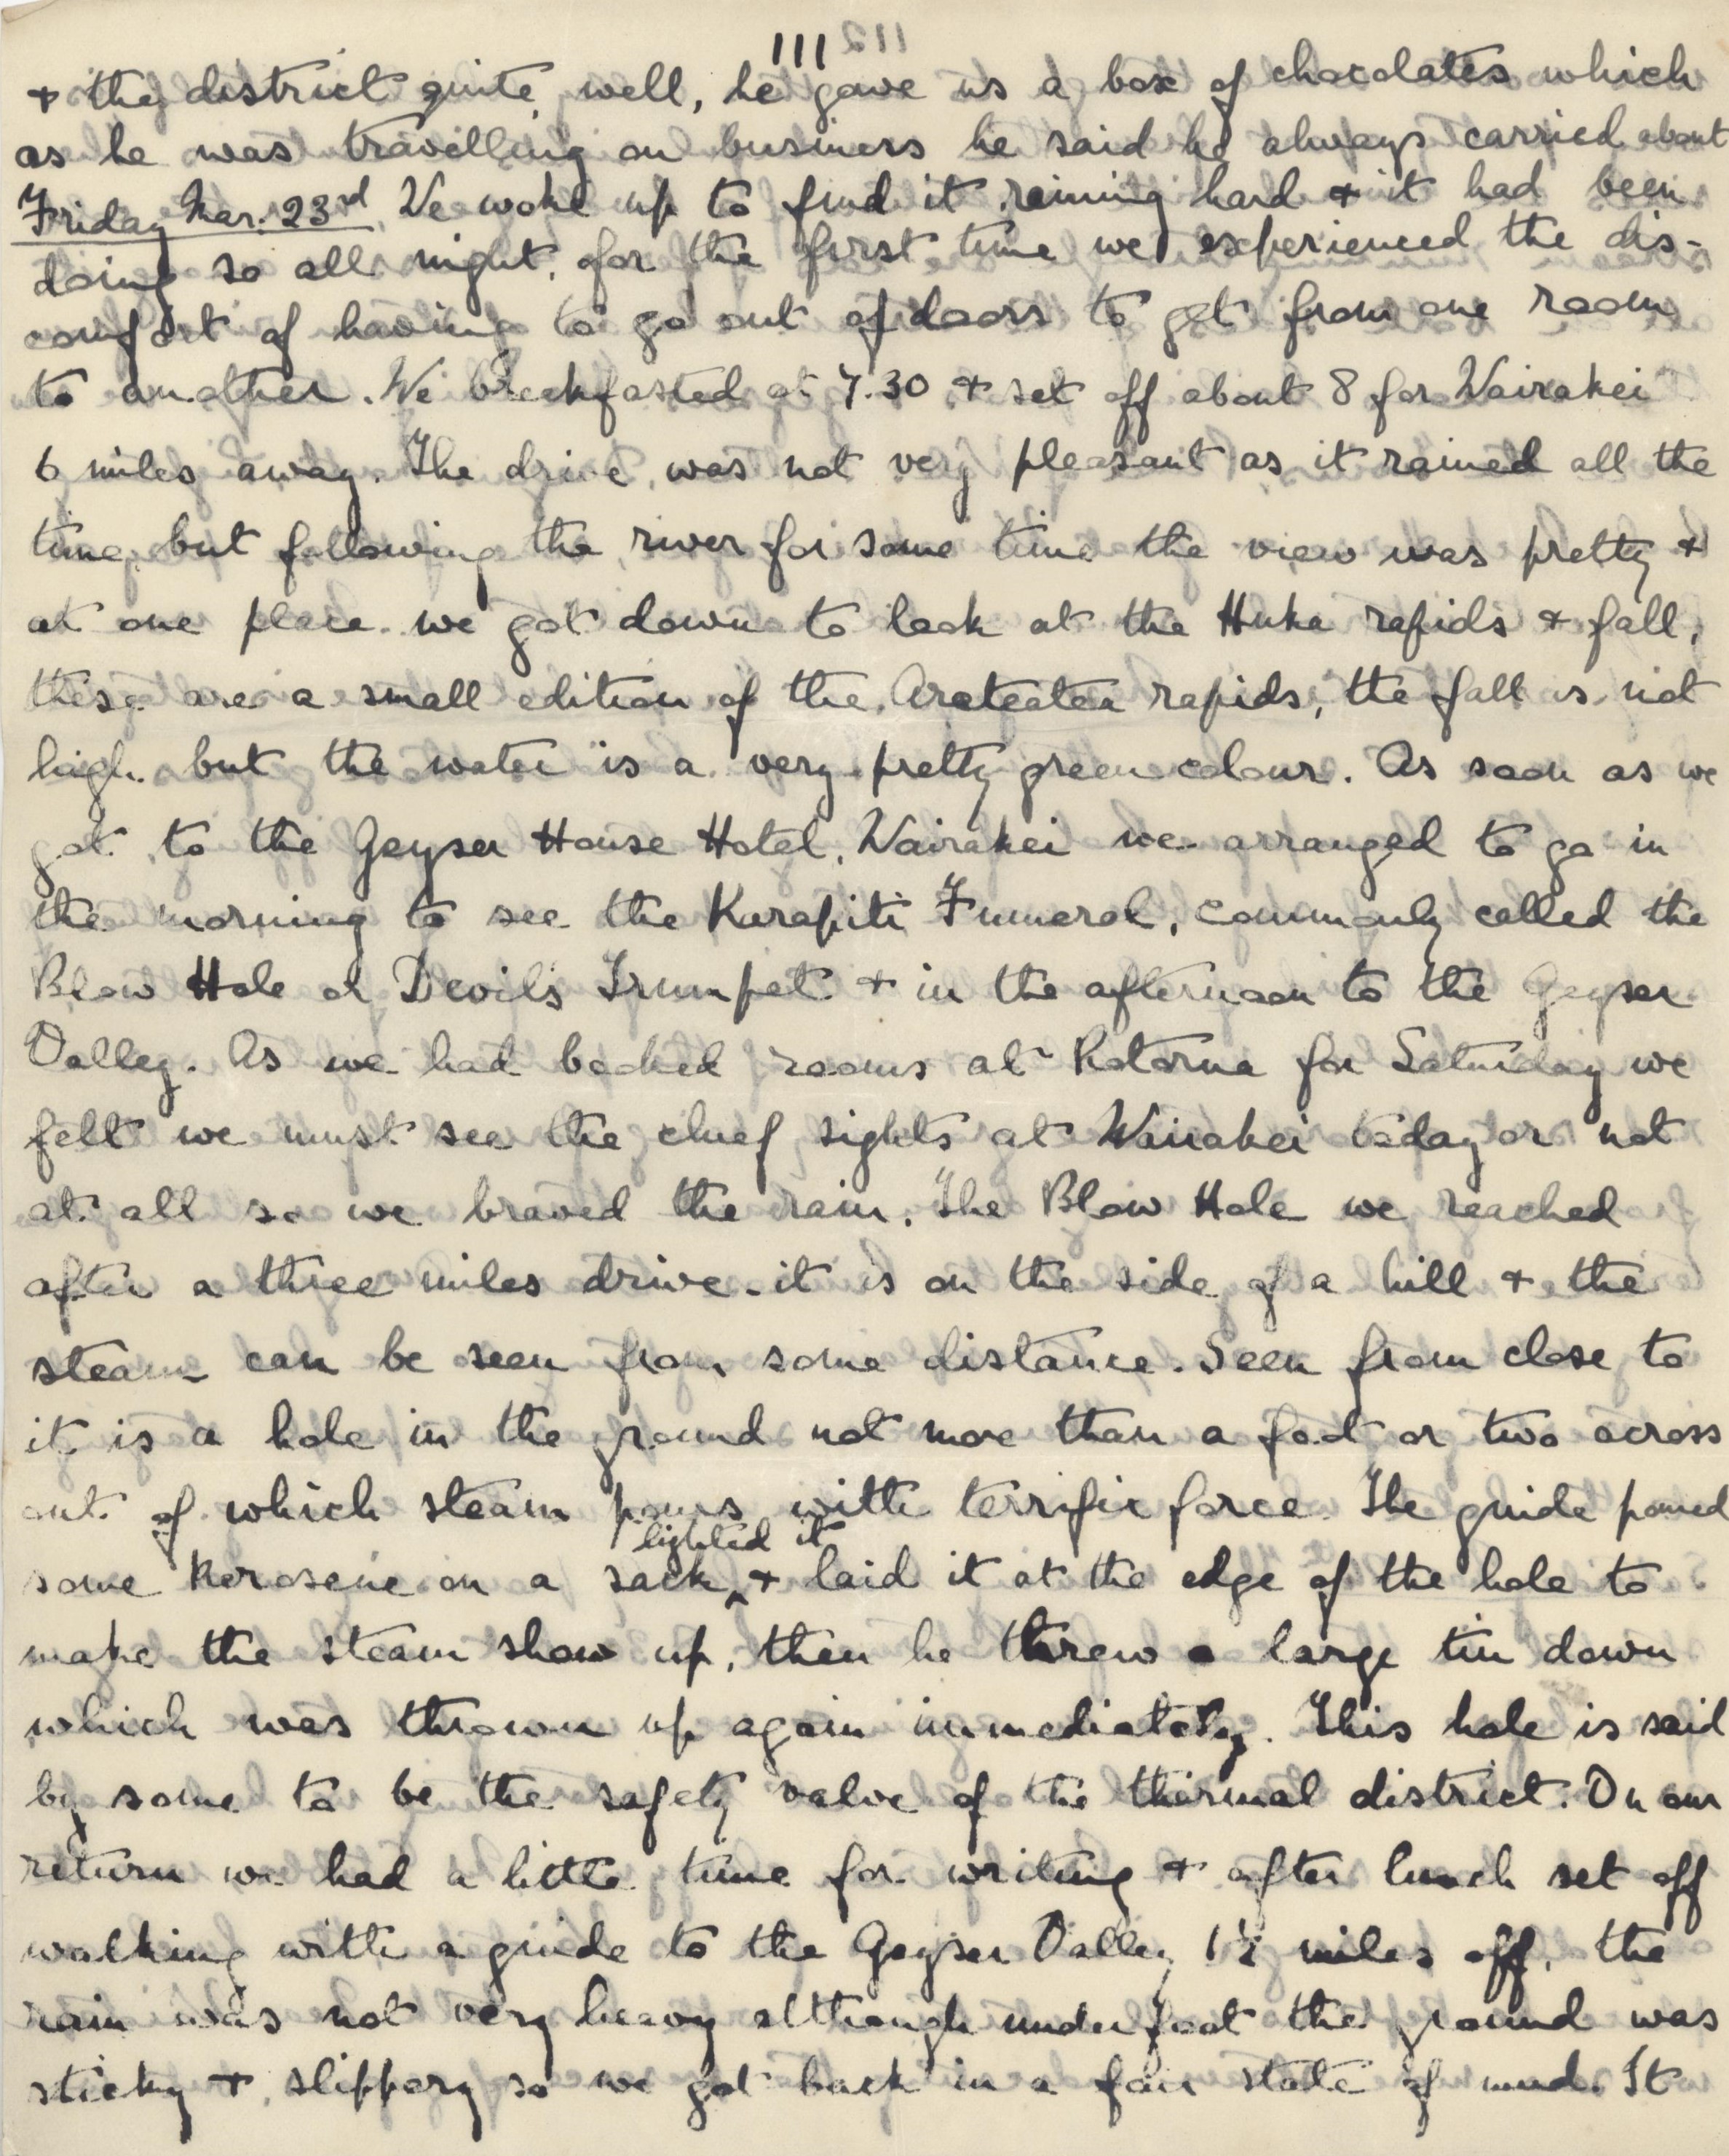 111
& the district quite well, he gave us a box of chocolates which
as he was travelling on business he said he always carried about
Friday Mar. 23rd We woke up to find it raining hard & it had been
doing so all night, for the first time we experienced the dis-
comfort of having to go out of doors to get from one room
to another. We breakfasted at 7.30 & set off about 8 for Wairakei
6 miles away. The drive was not very pleasant as it rained all the
time, but following the river for some time the view was pretty &
at one place we got down to look at the Huka rapids & fall,
these are a small edition of the Arateatea rapids, the fall is not
high but the water is a very pretty green colour. As soon as we
got to the Geyser House Hotel, Wairakei we arranged to go in
the morning to see the Karapiti Fumerol, commonly called the
Blow Hole or Devil's Trumpet & in the afternoon to the Geyser
Valley. As we had booked rooms at Rotorua for Saturday we
felt we must see the chief sights at Wairakei today or not
at all so we braved the rain. The Blow Hole we reached
after a three miles drive. it is on the side of a hill & the
steam can be seen from some distance. Seen from close to
it is a hole in the ground not more than a foot or two across
out of which steam pours with terrific force. The guide poured
some Kerosene on a sack, lighted it & laid it at the edge of the hole to
make the steam show up, then he threw a large tin down
which was thrown up again immediately. This hole is said
by some to be the safety valve of the thermal district. On our
return we had a little time for writing & after lunch set off
walking with a guide to the Geyser Valley 1½ miles off, the
rain was not very heavy although underfoot the ground was
sticky & slippery so we got back in a fair state of mud. It